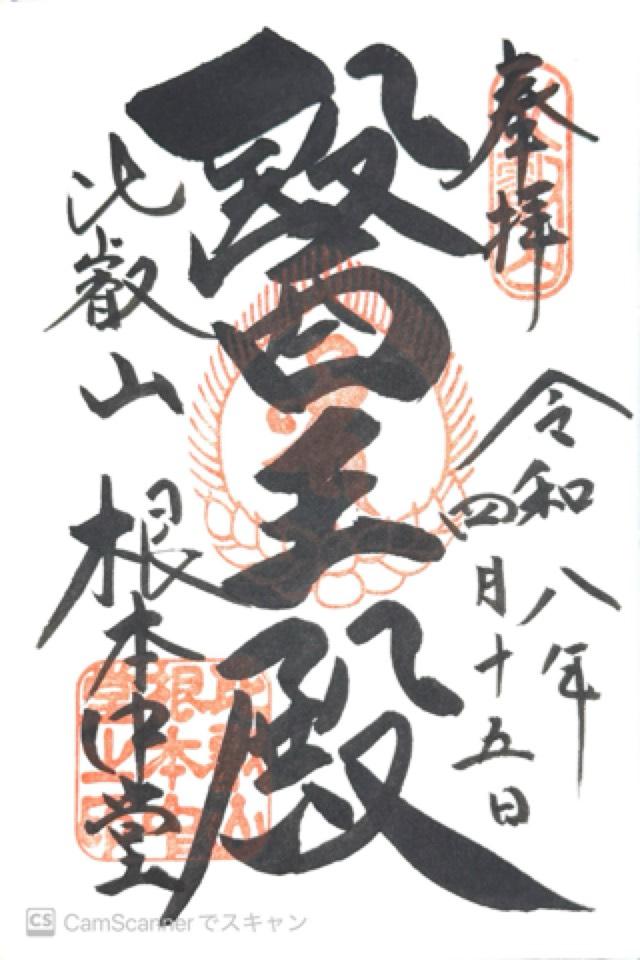 奉拝
令和八年
四月十五日
醫王殿
比叡山 根本中堂
CS CamScannerでスキャン